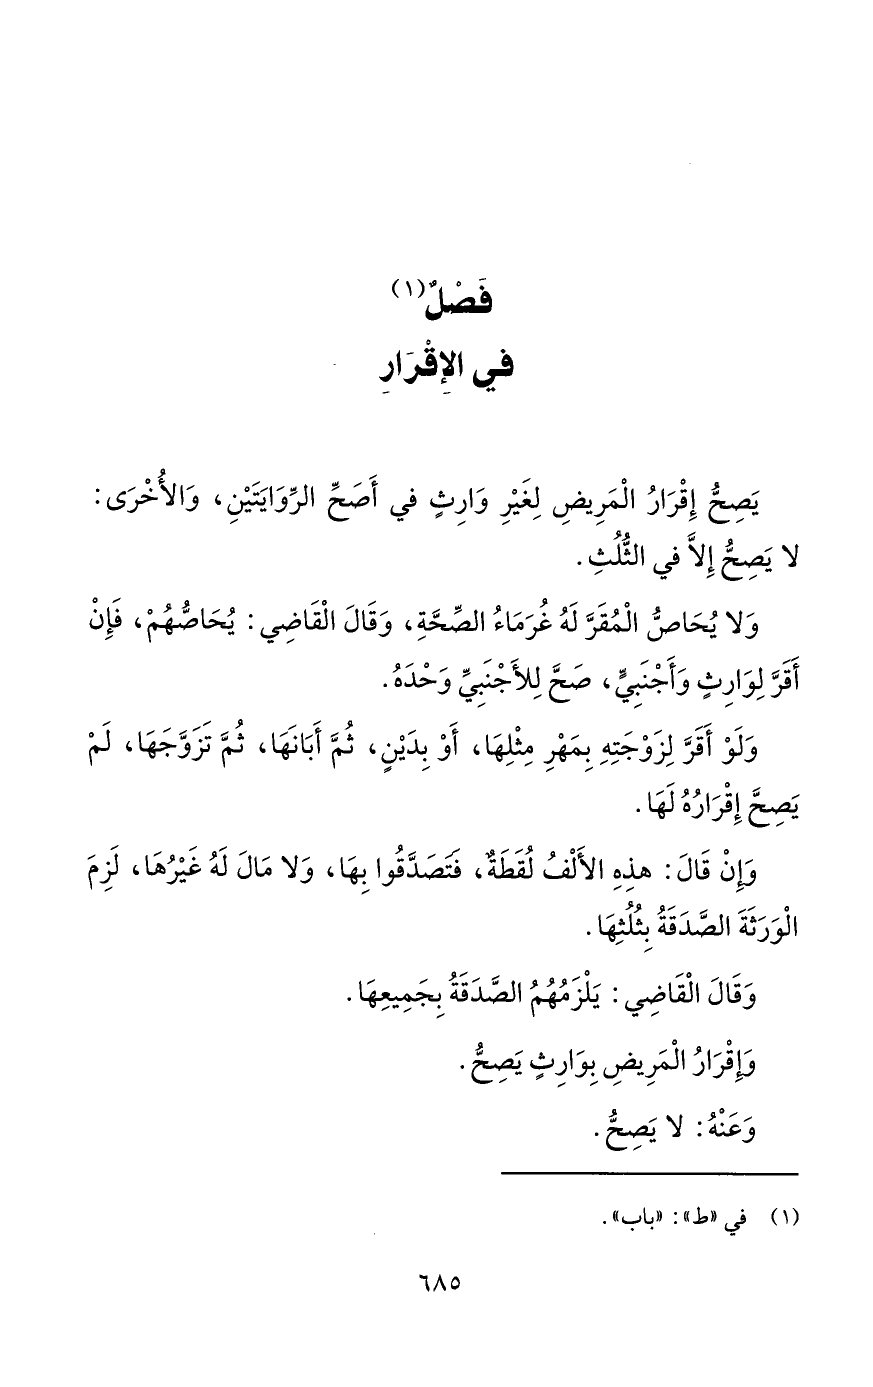 فَصْلٌ(١)
في الإِقْرَارِ
يَصِحُّ إِقْرَارُ الْمَرِيضِ لِغَيْرِ وَارِثٍ في أَصَحِّ الرِّوَايَتَيْنِ، وَالأُخْرَى:
لا يَصِحُّ إِلاَّ في الثُّلُثِ.
وَلا يُحَاصُّ الْمُقَرَّ لَهُ غُرَمَاءُ الصِّحَّةِ، وَقَالَ الْقَاضِي: يُحَاصُّهُمْ، فَإِنْ
أَقَرَّ لِوَارِثٍ وَأَجْنَبِيٍّ، صَحَّ لِلأَجْنَبِيِّ وَحْدَهُ.
وَلَوْ أَقَرَّ لِزَوْجَتِهِ بِمَهْرِ مِثْلِهَا، أَوْ بِدَيْنٍ، ثُمَّ أَبَانَهَا، ثُمَّ تَزَوَّجَهَا، لَمْ
يَصِحَّ إِقْرَارُهُ لَهَا.
وَإِنْ قَالَ: هذِهِ الأَلْفُ لُقَطَةٌ، فَتَصَدَّقُوا بِهَا، وَلا مَالَ لَهُ غَيْرُهَا، لَزِمَ
الْوَرَثَةَ الصَّدَقَةُ بِثُلُثِهَا.
وَقَالَ الْقَاضِي: يَلْزَمُهُمُ الصَّدَقَةُ بِجَمِيعِهَا.
وَإِقْرَارُ الْمَرِيضِ بِوَارِثٍ يَصِحُّ.
وَعَنْهُ: لا يَصِحُّ.
(١) في «ط»: «باب».
٦٨٥